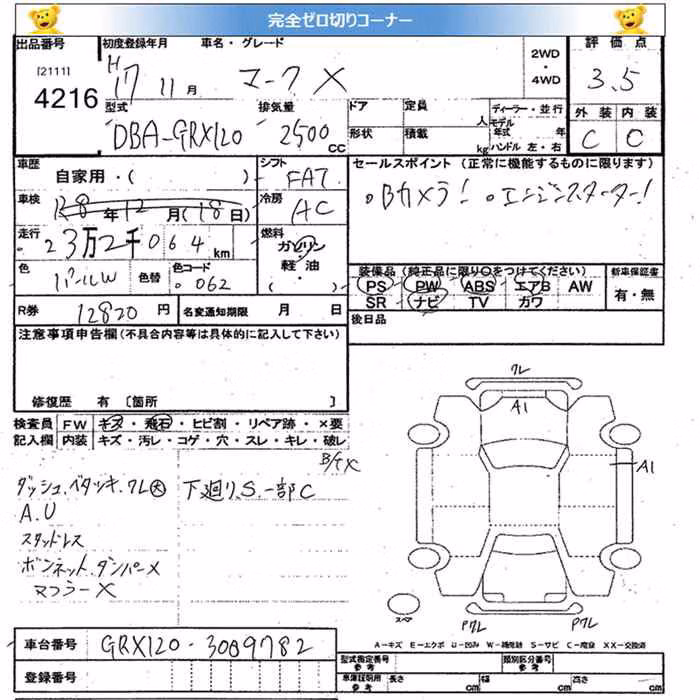 完全ゼロ切りコーナー
出品番号 初度登録年月 車名・グレード 評価点
[2111] H17 11月 マークX 2WD・4WD 3.5
4216 型式 排気量 ドア 定員 人 ディーラー・並行 外装 内装
DBA-GRX120 2500cc 形状 積載 kg モデル年式 年 ハンドル 左・右 C C
車歴 自家用・( ) シフト FAT セールスポイント (正常に機能するものに限ります)
車検 R8年12月(18日) 冷房 AC 。Bカメラ! 。エンジンスターター!
走行 23万2千064km 燃料 ガソリン
軽油
( )
色 パールW 色替 色コード 062 装備品 (純正品に限り○をつけてください) 新車保証書
PS PW ABS エアB AW 有・無
SR ナビ TV カワ
R券 12820円 名変通知期限 月 日 後日品
注意事項申告欄(不具合内容等は具体的に記入して下さい)
修復歴 有〔箇所 〕
検査員 FW キズ・飛石・ヒビ割・リペア跡・×要
記入欄 内装 キズ・汚レ・コゲ・穴・スレ・キレ・破レ
ダッシュ.ベタツキ.ワレ大 下廻り.S.一部C
A.U
スタッドレス
ボンネット.ダンパーX
マフラーX
ワレ
A1
A1
スペア Pワレ Pワレ
車台番号 GRX120-3009782
登録番号
型式指定番号 参考 類別区分番号 参考
車庫証明用 参考 長さ cm 幅 cm 高さ cm